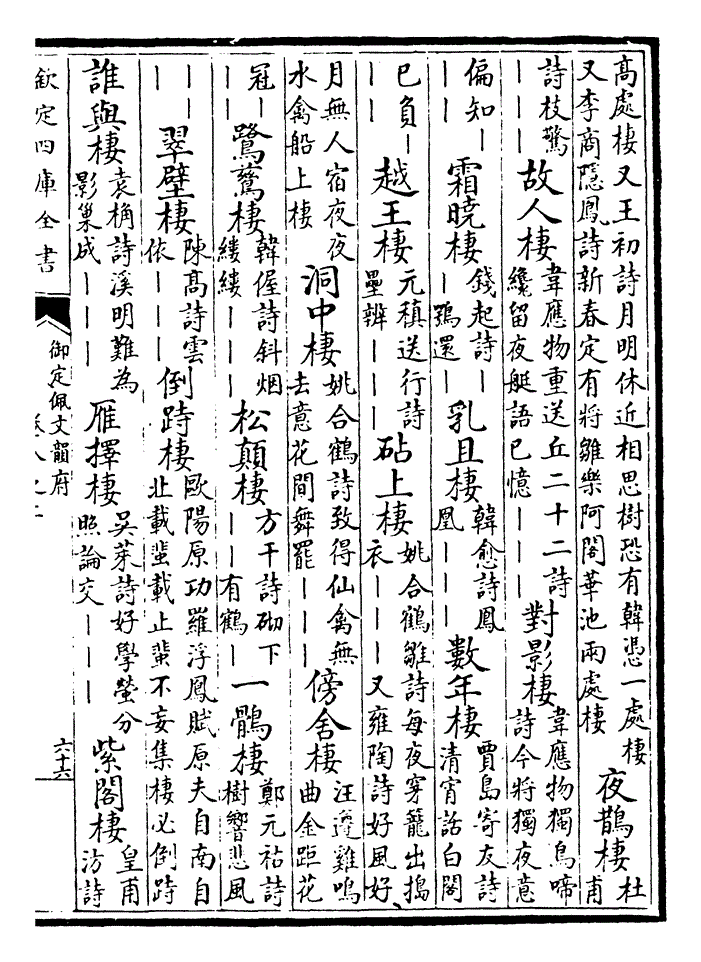 高處棲又王初詩月明休近相思樹恐有韓憑一處棲又李商隱鳳詩新春定有將雛樂阿閣華池兩處棲 夜鵲棲 杜甫
詩枝驚｜｜｜ 故人棲 韋應物重送丘二十二詩纔留夜艇語已憶｜｜｜ 對影棲 韋應物獨鳥啼詩今將獨夜意
偏知｜｜｜ 霜曉棲 錢起詩｜｜鵶還｜ 乳且棲 韓愈詩鳳凰｜｜｜ 數年棲 賈島寄友詩清宵話白閣
已負｜｜｜ 越王棲 元稹送行詩壘辨｜｜｜ 砧上棲 姚合鶴雛詩每夜穿籠出搗衣｜｜｜又雍陶詩好風好
月無人宿夜夜水禽船上棲 洞中棲 姚合鶴詩致得仙禽無去意花間舞罷｜｜｜ 傍舍棲 汪遵雞鳴曲金距花
冠｜｜｜ 鷺鷥棲 韓偓詩斜烟縷縷｜｜｜ 松顛棲 方干詩砌下｜｜有鶴｜ 一鶻棲 鄭元祐詩樹響悲風
｜｜｜ 翠壁棲 陳高詩雲依｜｜｜ 倒跱棲 歐陽原功羅浮鳳賦原夫自南自北載蜚載止蜚不妄集棲必倒跱
誰與棲 袁桷詩溪明難為影巢成｜｜｜ 雁擇棲 吳萊詩好學螢分照論交｜｜｜ 紫閣棲 皇甫汸詩
欽定四庫全書
御定佩文韻府
卷八之二
六十六